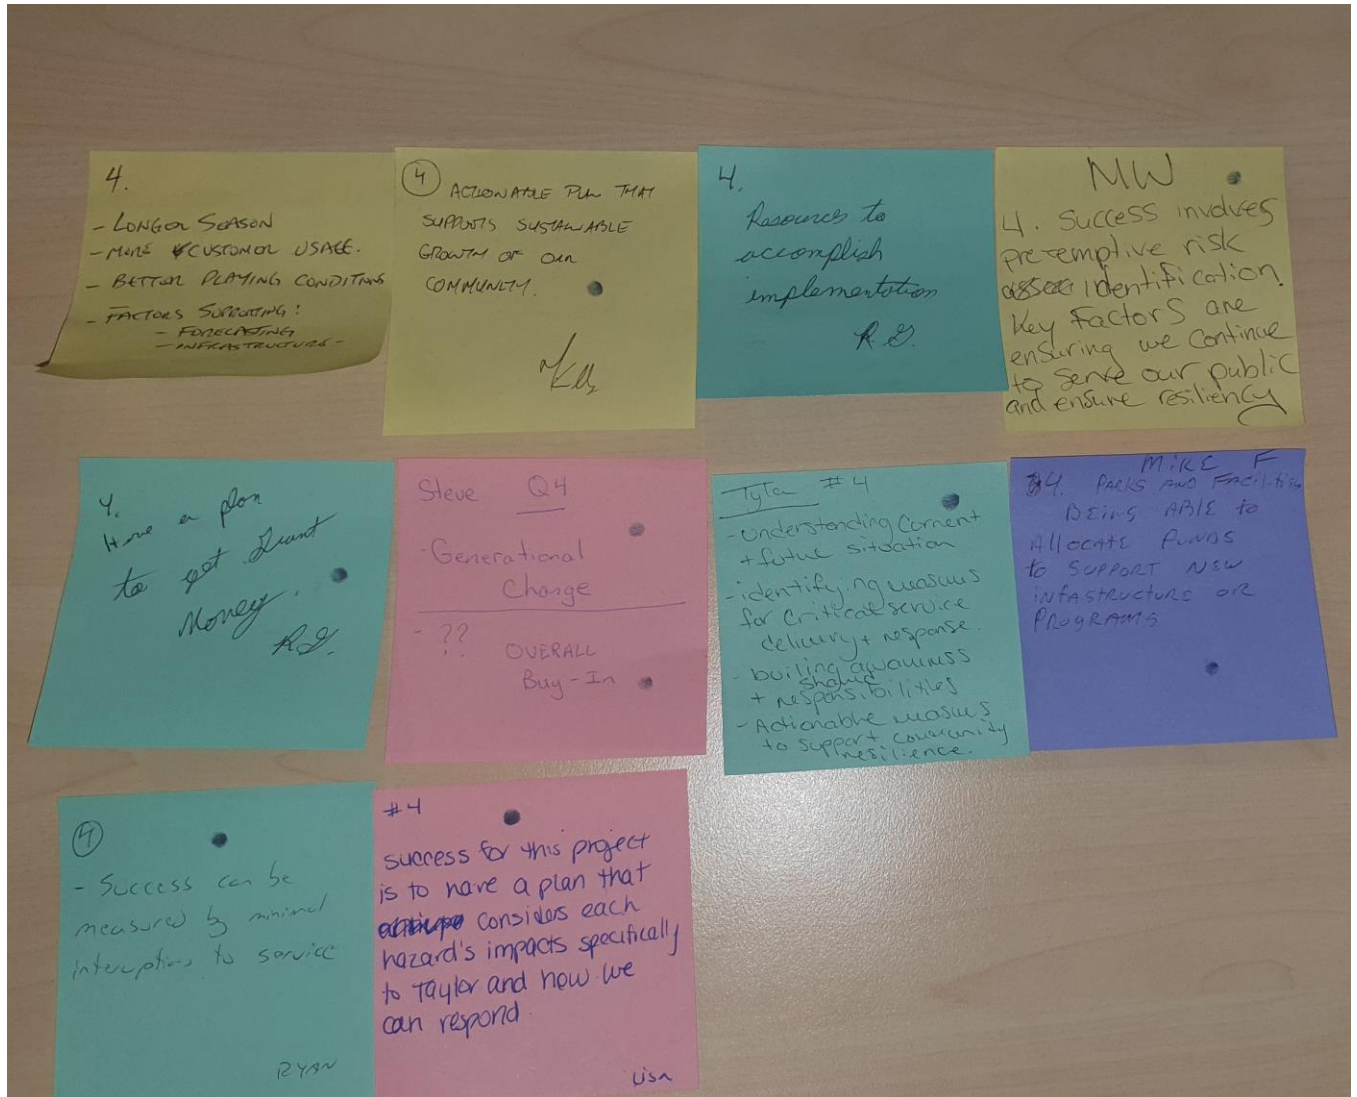 4.
- LONGER SEASON
- MORE CUSTOMER USAGE.
- BETTER PLAYING CONDITIONS
- FACTORS SUPPORTING:
- FORECASTING
- INFRASTRUCTURE -
4 ACTIONABLE PLAN THAT
SUPPORTS SUSTAINABLE
GROWTH OF OUR
COMMUNITY.
4.
Resources to
accomplish
implementation
R.G.
MW
4. Success involves
preemptive risk
identification.
Key factors are
ensuring we continue
to serve our public
and ensure resiliency
4.
Have a plan
to get Grant
Money.
R.G.
Steve Q4
- Generational
Change
- ??
OVERALL
Buy-In
Tyler #4
- Understanding Current
+ future situation
- identifying measures
for critical service
delivery + response.
- builing awareness
shared
+ responsibilities
- Actionable measures
to support community
resilience.
MIKE F
#4. PARKS AND FACILITIES
BEING ABLE to
ALLOCATE FUNDS
to SUPPORT NEW
INFASTRUCTURE OR
PROGRAMS
4
- Success can be
measured by minimal
interuptions to service
RYAN
#4
success for this project
is to have a plan that
considers each
hazard's impacts specifically
to Taylor and how we
can respond
Lisa